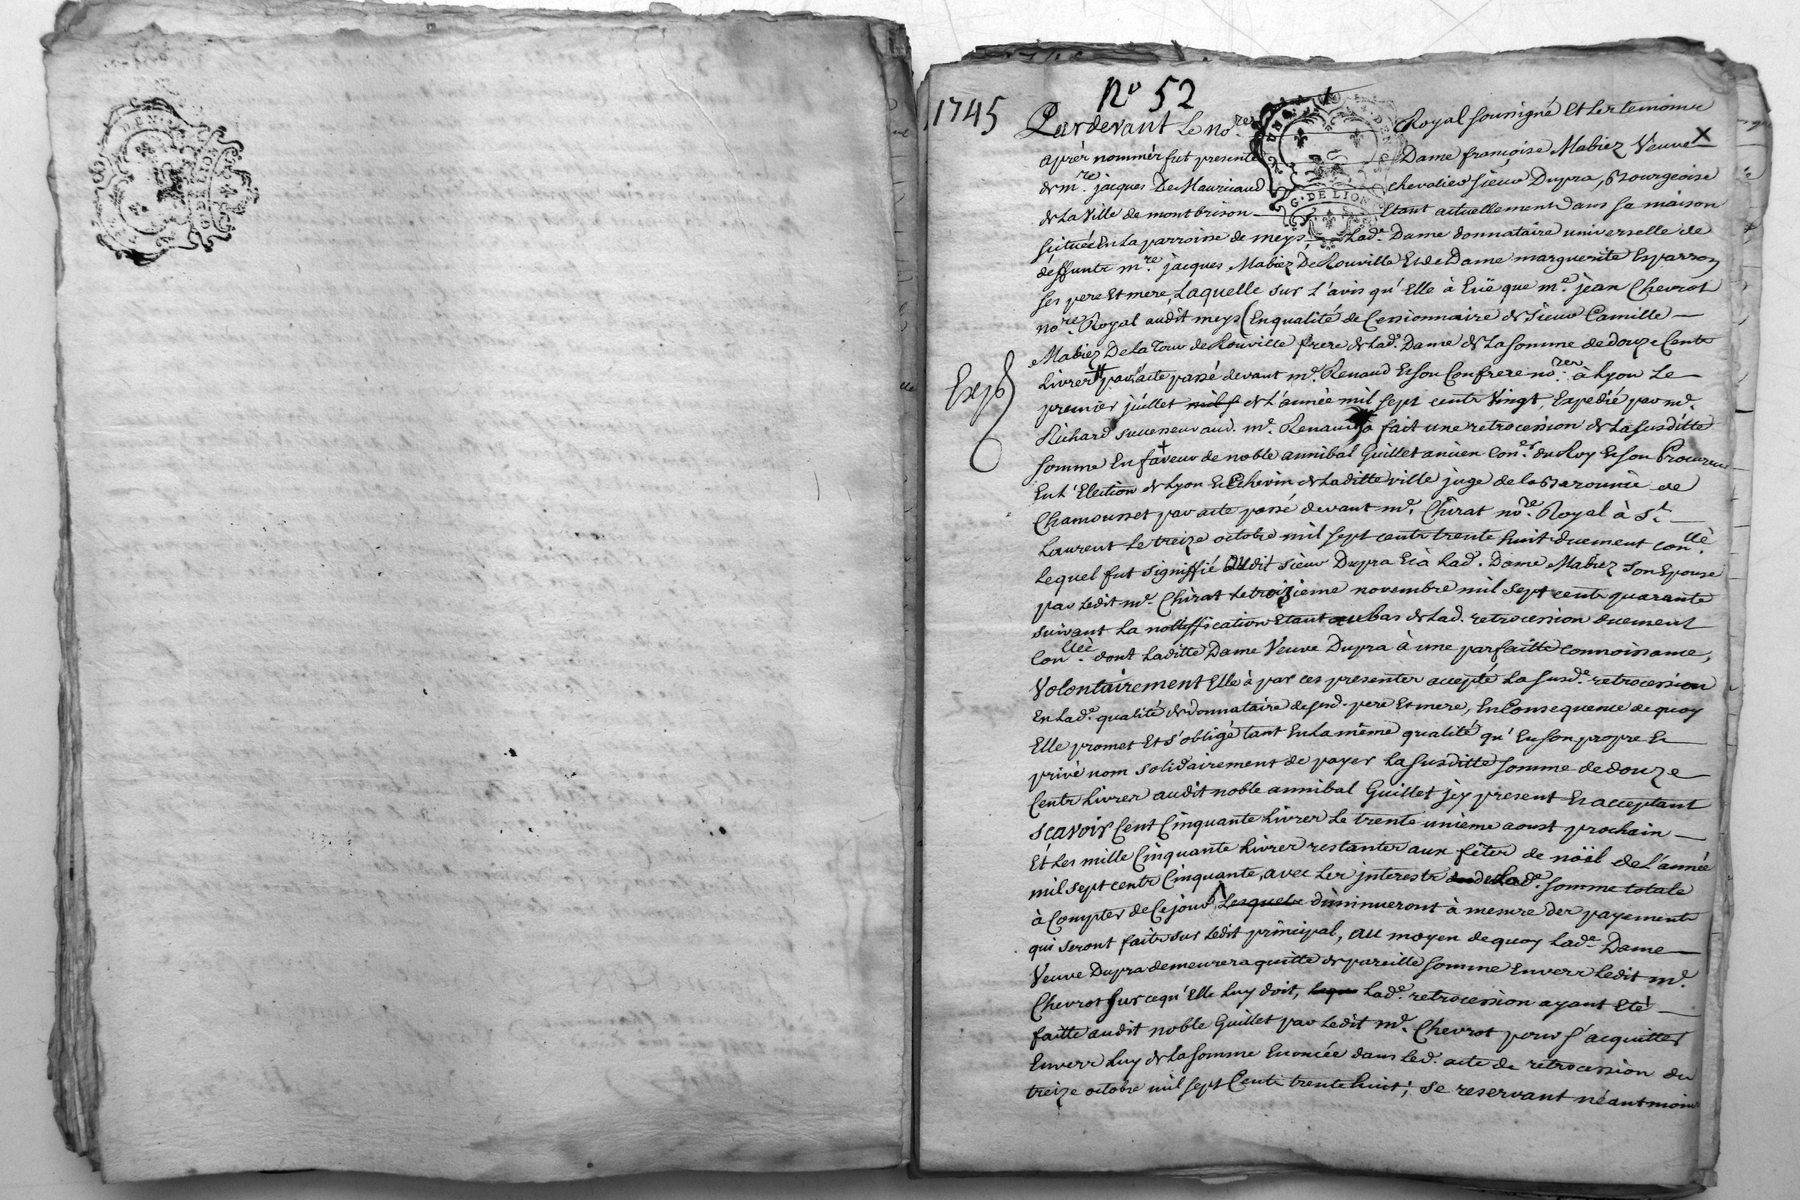 1745
No 52
Pardevant Le no.re Royal soussigné Et Les temoins
après nommés fut presente Dame françoise Mabiez Veuve x
de mre. jacques De Mauricaud chevalier sieur Dupra, Bourgeoise
de La Ville de montbrison Etant actuellement dans sa maison
située En La parroisse de meys, Lad.e Dame donnataire universelle de
deffunts m.re jacques Mabiez De Rouville Et de Dame marguerite Esparron
ses pere Et mere, Laquelle sur L'avis qu'Elle à Eüe que m.e jean Chevrot
no.re Royal audit meys (En qualité de Cessionnaire de sieur Camille
Mabiez De La Tour de Rouville frere de Lad. Dame de La somme de douze Cents
Livres par acte passé devant m.e Renaud Et son Confrere no.res à Lyon Le
Exp
premier juillet de L'année mil sept cents Vingt, Expedié par m.e
Richard successeur aud. m.e Renaud à fait une retrocession de La susditte
somme En faveur de noble annibal Guillet ancien Con.er du Roy Et son Procureur
En L'Election de Lyon Et Echevin de Laditte ville juge de la Baronnie de
Chamousset par acte passé devant m.e Chirat no.re Royal à S.t
Laurent Le treize octobre mil sept cents trente huit duement con.llé
Lequel fut signiffié audit sieur Dupra Et à Lad. Dame Mabiez son Epouse
par Ledit m.e Chirat Le troizieme novembre mil sept cents quarante
suivant La nottiffication Etant au bas de Lad. retrocession duement
Con.llée dont Laditte Dame Veuve Dupra à une parfaitte connoissance,
Volontairement Elle à par ces presentes accepté La susd.e retrocession
En Lad.e qualité de donnataire de sesd. pere Et mere, En Consequence de quoy
Elle promet Et s'obligé tant En La même qualité qu'En son propre Et
privé nom solidairement de payer La susditte somme de douze
Cents Livres audit noble annibal Guillet jcy present Et acceptant
scavoir Cent Cinquante Livres Le trente unieme aoust prochain
Et Les mille Cinquante Livres restantes aux fêtes de noël de L'année
mil sept cents Cinquante, avec Les jnterests de Lad.e somme totale
à Compter de Ce jour Lesquels diminueront à mesure des payements
qui seront faits sur Ledit principal, au moyen de quoy Lad.e Dame
Veuve Dupra demeurera quitte de pareille somme Envers Ledit m.e
Chevrot sur ce qu'Elle Luy doit, Lad.e retrocession ayant Eté
faitte audit noble Guillet par Ledit m.e Chevrot pour s'acquitter
Envers Luy de La somme Enoncée dans Led. acte de retrocession du
treize octobre mil sept Cents trente huit; se reservant néantmoins
G. DE LION